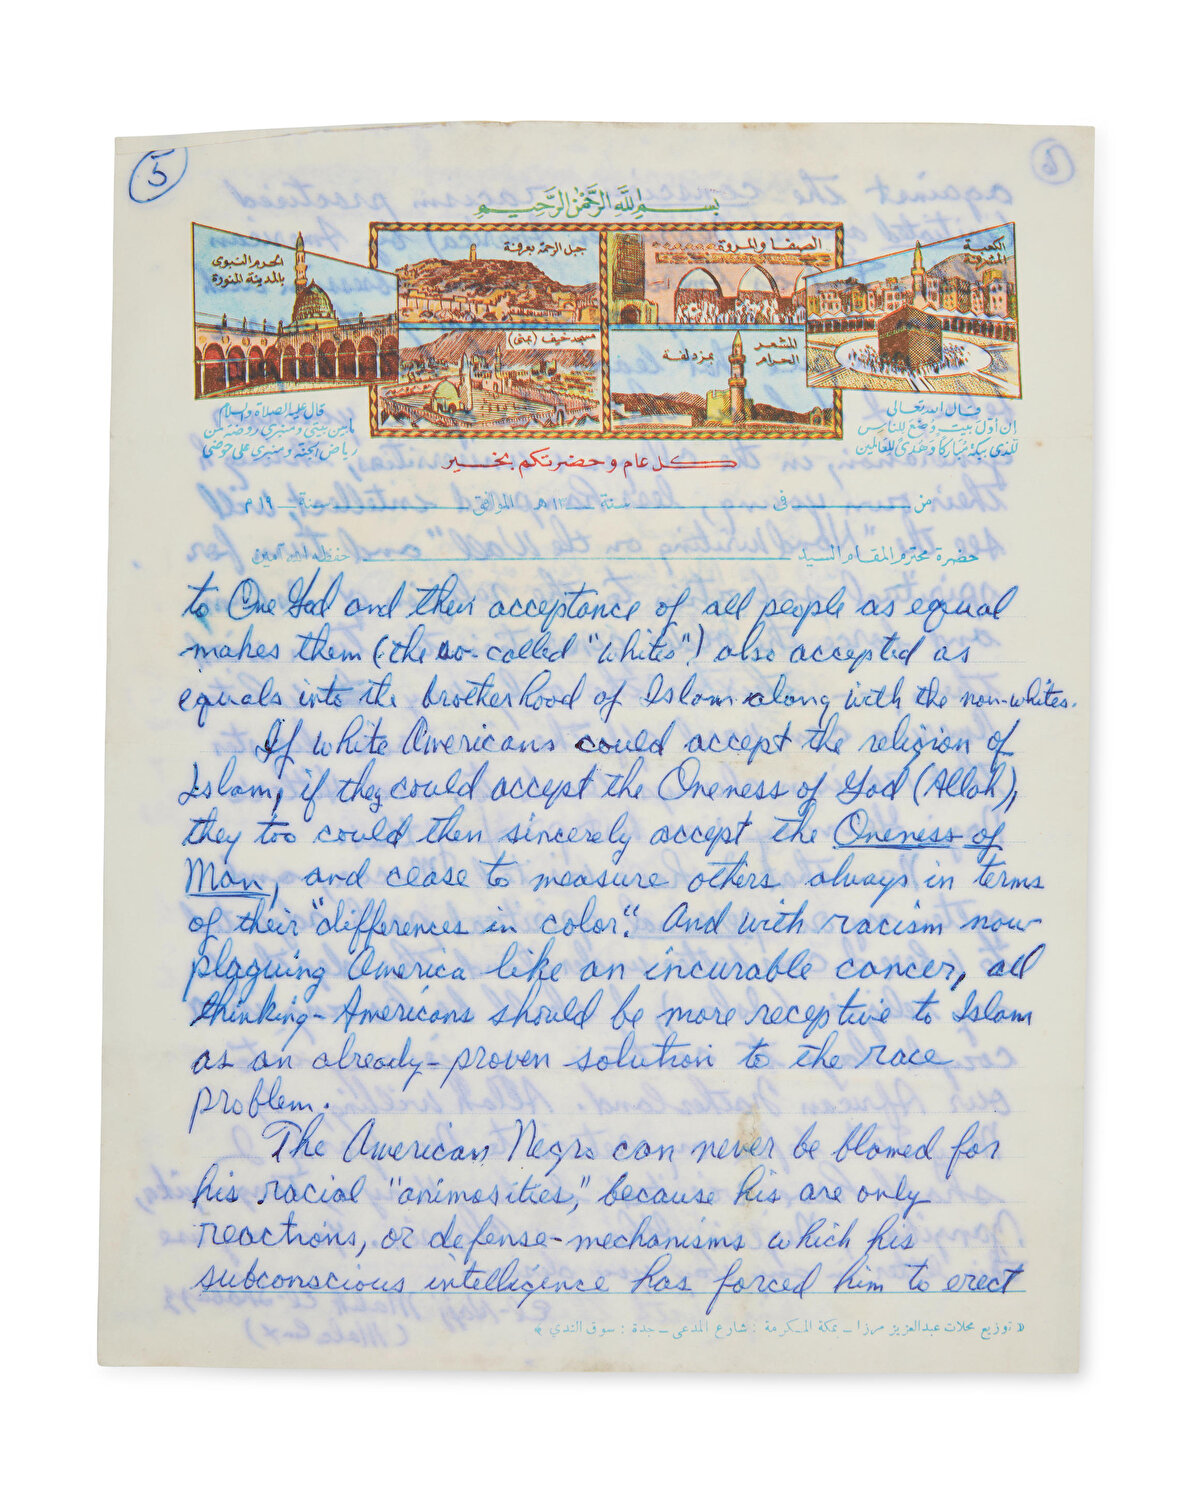 5
6
بسم الله الرحمن الرحيم
الحرم النبوي
بالمدينة المنورة
جبل الرحمة بعرفة
الصفا والمروة
الكعبة
المشرفة
مسجد خيف (بمنى)
المشعر
الحرام
بمزدلفة
قال عليه الصلاة والسلام
ما بين بيتي ومنبري روضة من
رياض الجنة ومنبري على حوضي
قال الله تعالى
إن أول بيت وضع للناس
للذي ببكة مباركا وهدى للعالمين
كل عام وحضرتكم بخير
من في سنة ١٣هـ الموافق سنة ١٩م
حضرة محترم المقام السيد حفظه الله آمين
to One God and their acceptance of all people as equal
makes them (the so-called "whites") also accepted as
equals into the brotherhood of Islam along with the non-whites.
If white Americans could accept the religion of
Islam, if they could accept the Oneness of God (Allah),
they too could then sincerely accept the Oneness of
Man, and cease to measure others always in terms
of their "differences in color". And with racism now
plaguing America like an incurable cancer, all
thinking-Americans should be more receptive to Islam
as an already-proven solution to the race
problem.
The American Negro can never be blamed for
his racial "animosities," because his are only
reactions, or defense-mechanisms which his
subconscious intelligence has forced him to erect
« توزيع محلات عبدالعزيز مرزا ـ بمكة المكرمة : شارع المدعى ـ جدة : سوق الندى »